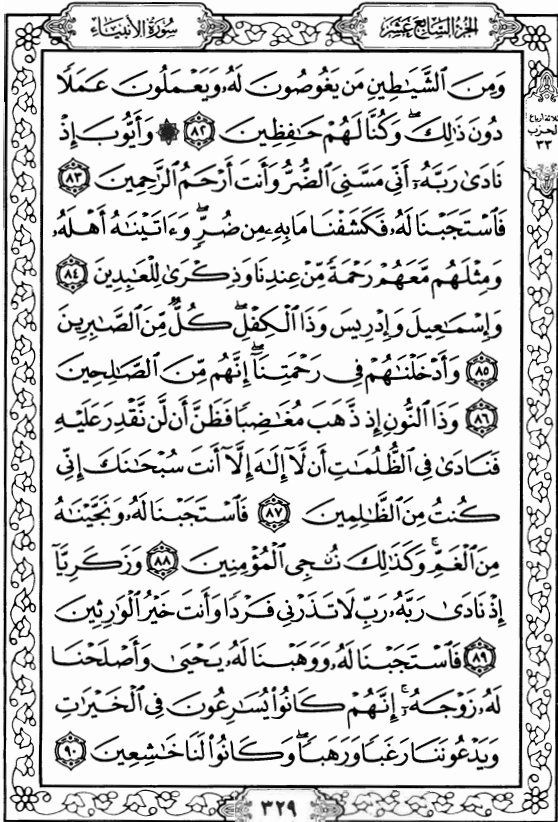 الجزء السابع عشر
سورة الأنبياء
وَمِنَ ٱلشَّيَٰطِينِ مَن يَغُوصُونَ لَهُۥ وَيَعْمَلُونَ عَمَلًا
دُونَ ذَٰلِكَۖ وَكُنَّا لَهُمْ حَٰفِظِينَ ٨٢ ۞ وَأَيُّوبَ إِذْ
ثلاثة أرباع
الحزب
٣٣
نَادَىٰ رَبَّهُۥٓ أَنِّي مَسَّنِيَ ٱلضُّرُّ وَأَنتَ أَرْحَمُ ٱلرَّٰحِمِينَ ٨٣
فَٱسْتَجَبْنَا لَهُۥ فَكَشَفْنَا مَا بِهِۦ مِن ضُرٍّۖ وَءَاتَيْنَٰهُ أَهْلَهُۥ
وَمِثْلَهُم مَّعَهُمْ رَحْمَةً مِّنْ عِندِنَا وَذِكْرَىٰ لِلْعَٰبِدِينَ ٨٤
وَإِسْمَٰعِيلَ وَإِدْرِيسَ وَذَا ٱلْكِفْلِۖ كُلٌّ مِّنَ ٱلصَّٰبِرِينَ
٨٥ وَأَدْخَلْنَٰهُمْ فِي رَحْمَتِنَآۖ إِنَّهُم مِّنَ ٱلصَّٰلِحِينَ
٨٦ وَذَا ٱلنُّونِ إِذ ذَّهَبَ مُغَٰضِبًا فَظَنَّ أَن لَّن نَّقْدِرَ عَلَيْهِ
فَنَادَىٰ فِي ٱلظُّلُمَٰتِ أَن لَّآ إِلَٰهَ إِلَّآ أَنتَ سُبْحَٰنَكَ إِنِّي
كُنتُ مِنَ ٱلظَّٰلِمِينَ ٨٧ فَٱسْتَجَبْنَا لَهُۥ وَنَجَّيْنَٰهُ
مِنَ ٱلْغَمِّۚ وَكَذَٰلِكَ نُۨجِي ٱلْمُؤْمِنِينَ ٨٨ وَزَكَرِيَّآ
إِذْ نَادَىٰ رَبَّهُۥ رَبِّ لَا تَذَرْنِي فَرْدًا وَأَنتَ خَيْرُ ٱلْوَٰرِثِينَ
٨٩ فَٱسْتَجَبْنَا لَهُۥ وَوَهَبْنَا لَهُۥ يَحْيَىٰ وَأَصْلَحْنَا
لَهُۥ زَوْجَهُۥٓۚ إِنَّهُمْ كَانُوا۟ يُسَٰرِعُونَ فِي ٱلْخَيْرَٰتِ
وَيَدْعُونَنَا رَغَبًا وَرَهَبًاۖ وَكَانُوا۟ لَنَا خَٰشِعِينَ ٩٠
٣٢٩